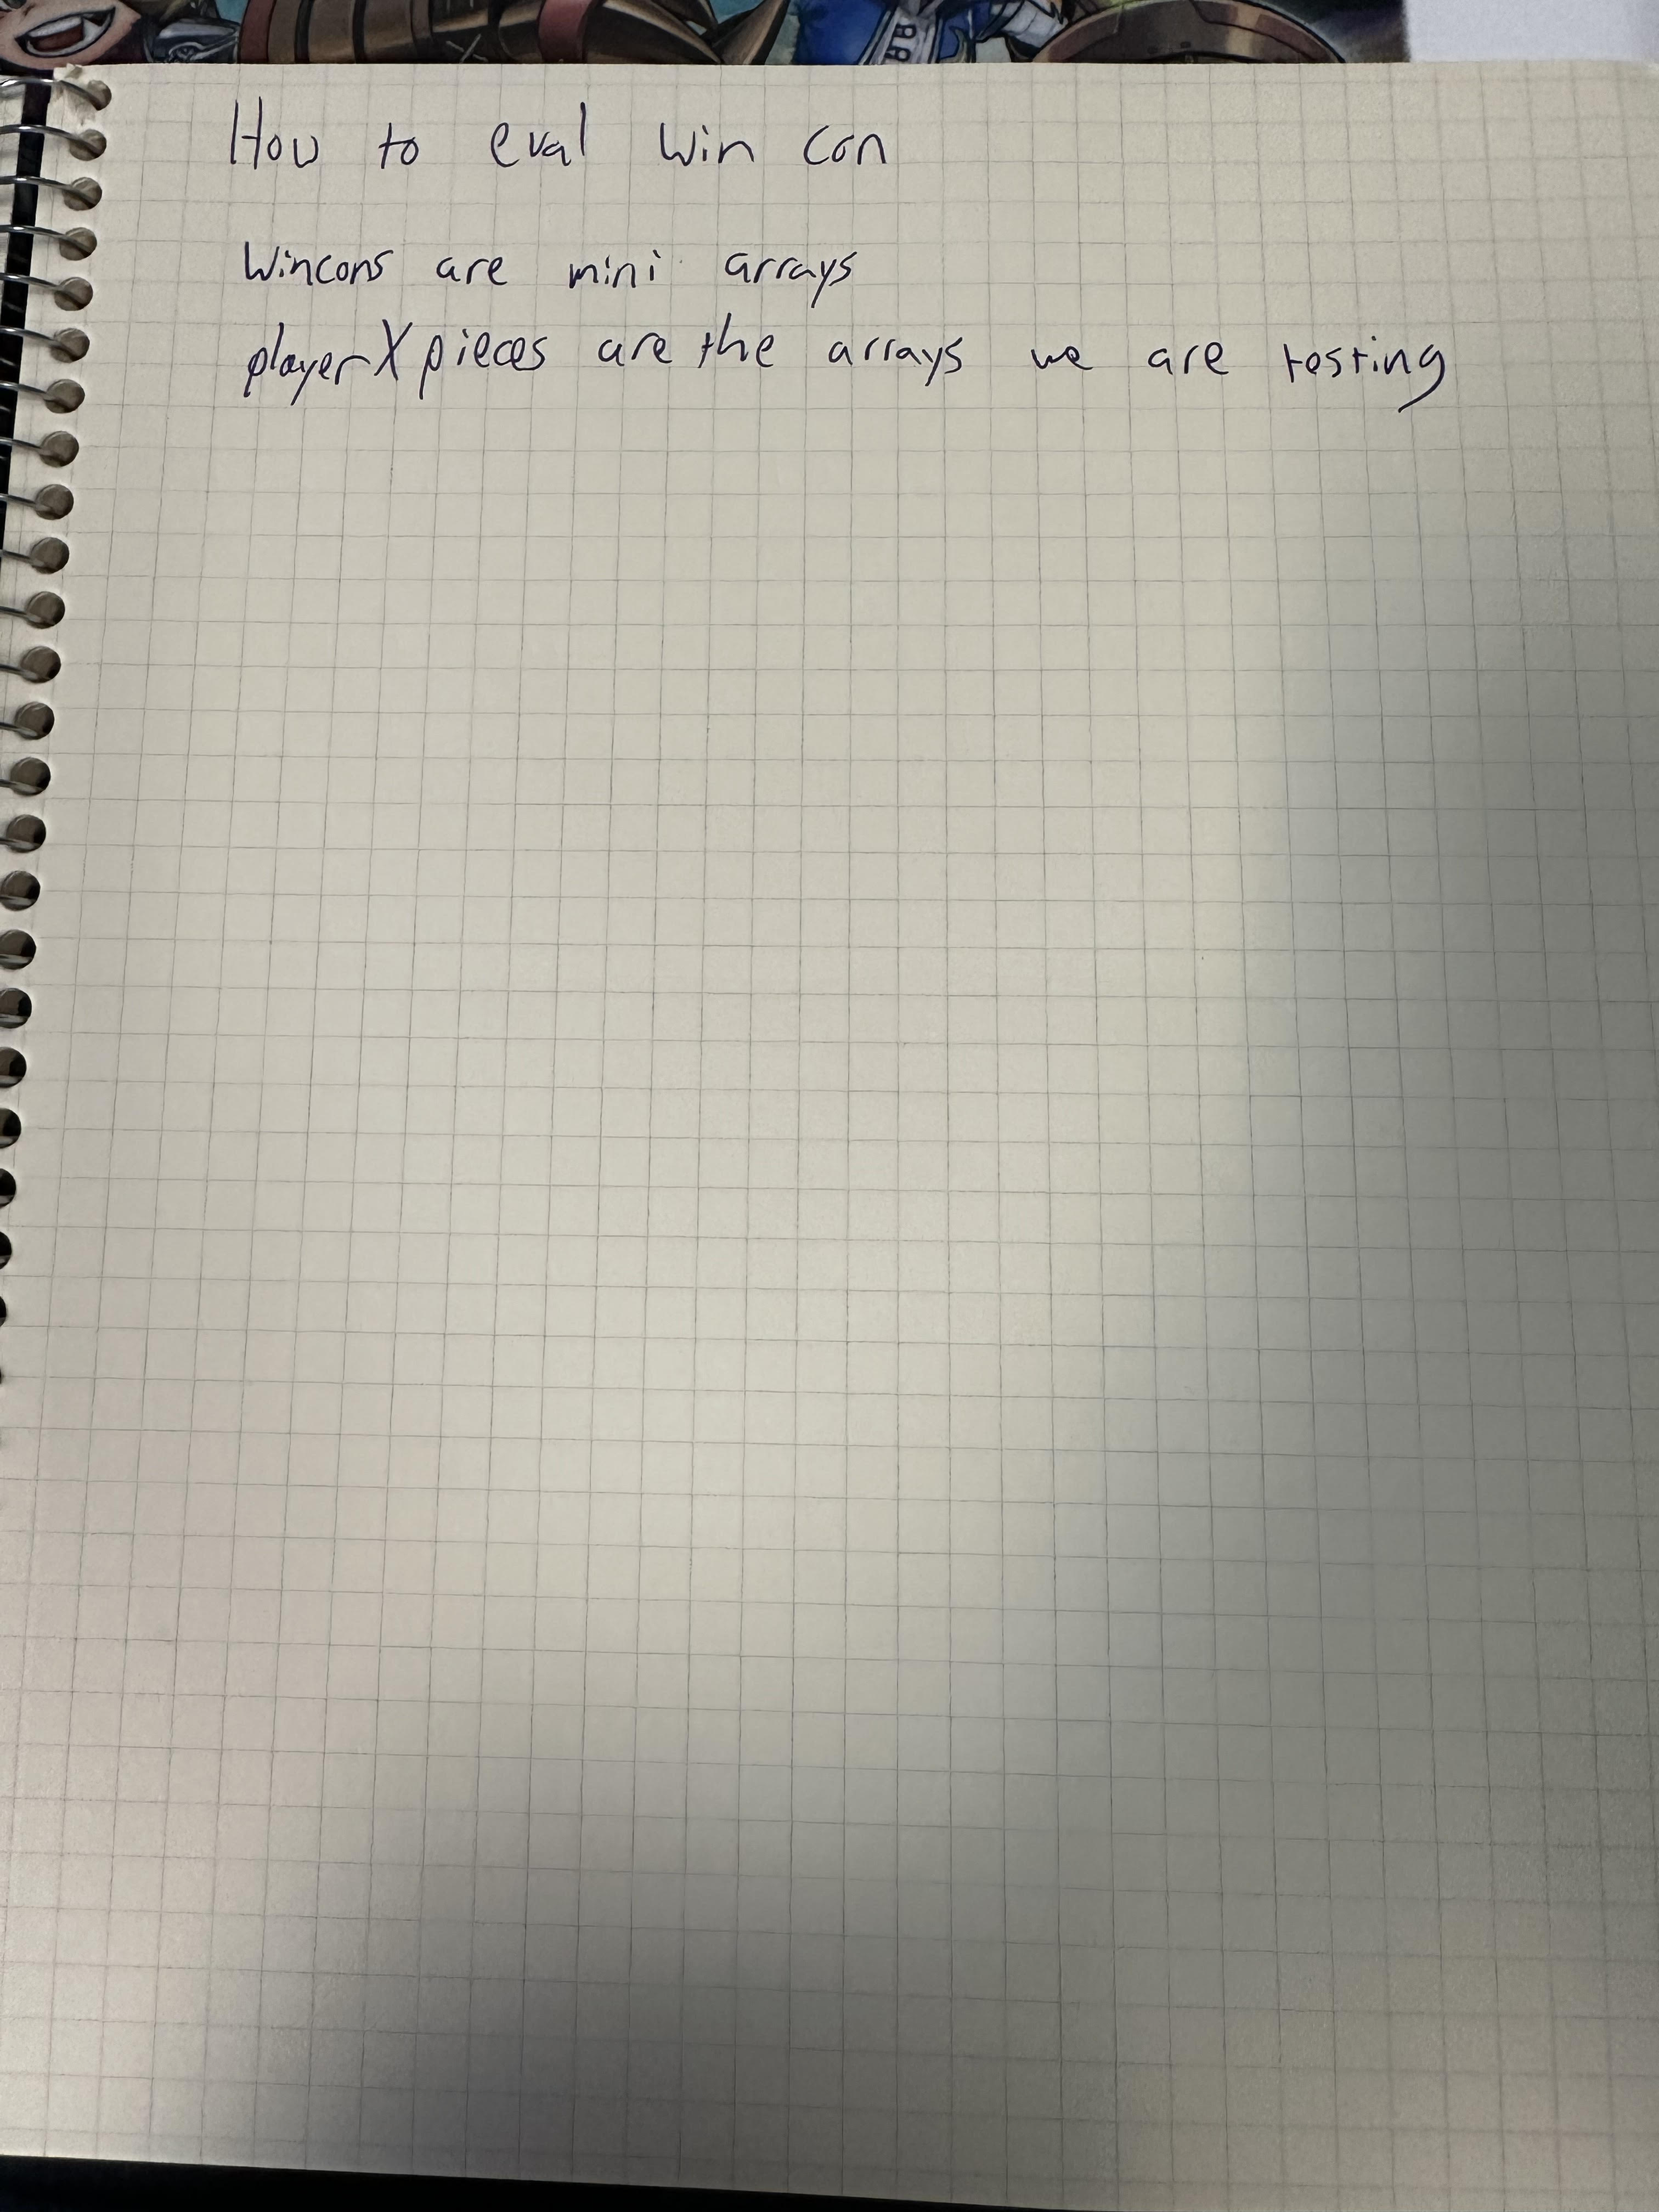 How to eval win con
Wincons are mini arrays
playerXpieces are the arrays we are testing